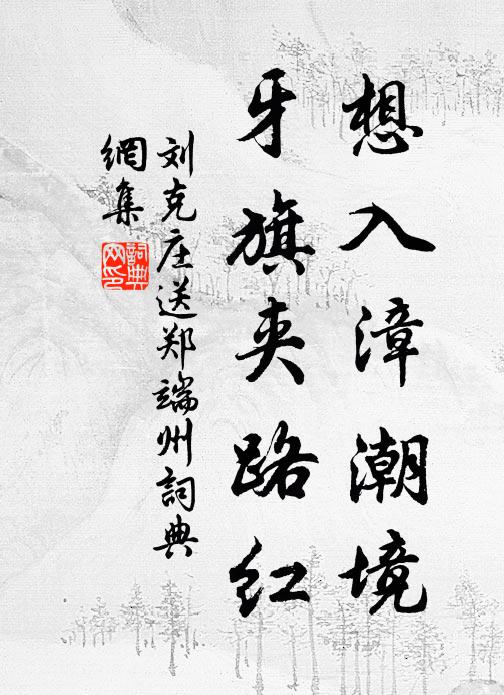 想入漳潮境
牙旗夹路红
刘克庄送郑端州詞典
網集
詞典
网印